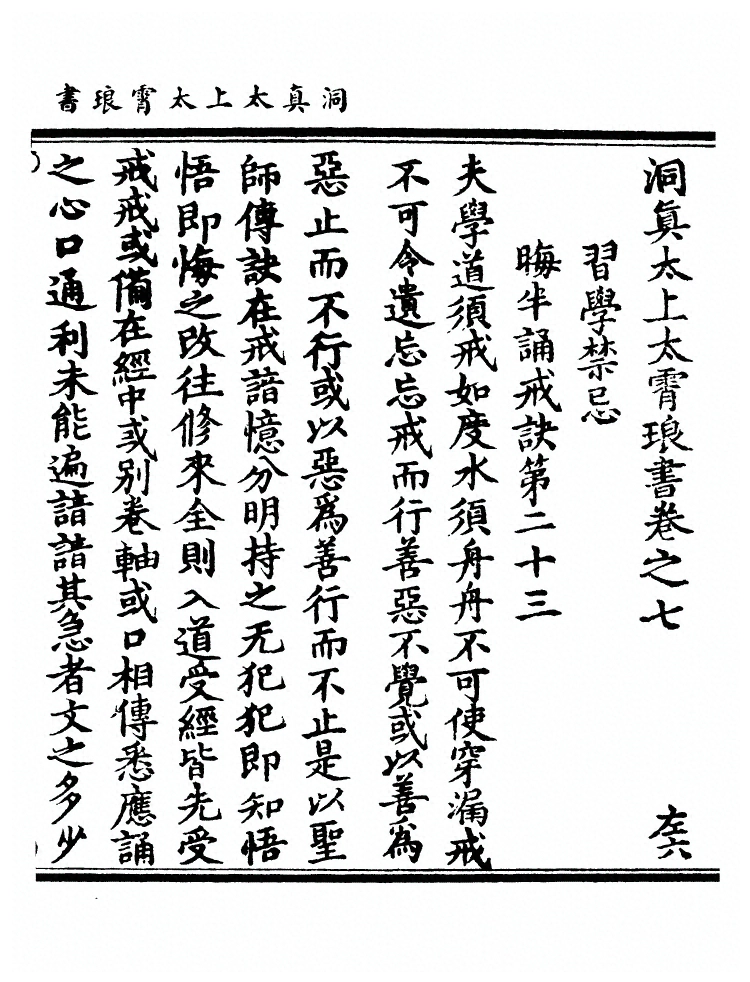 洞真太上太霄琅書
洞真太上太霄琅書卷之七
左六
習學禁忌
晦半誦戒訣第二十三
夫學道須戒如度水須舟舟不可使穿漏戒
不可令遺忘忘戒而行善惡不覺或以善為
惡止而不行或以惡為善行而不止是以聖
師傳訣在戒諳憶分明持之无犯犯即知悟
悟即悔之改往修來全則入道受經皆先受
戒戒或備在經中或別卷軸或口相傳悉應誦
之心口通利未能遍諳諳其急者文之多少